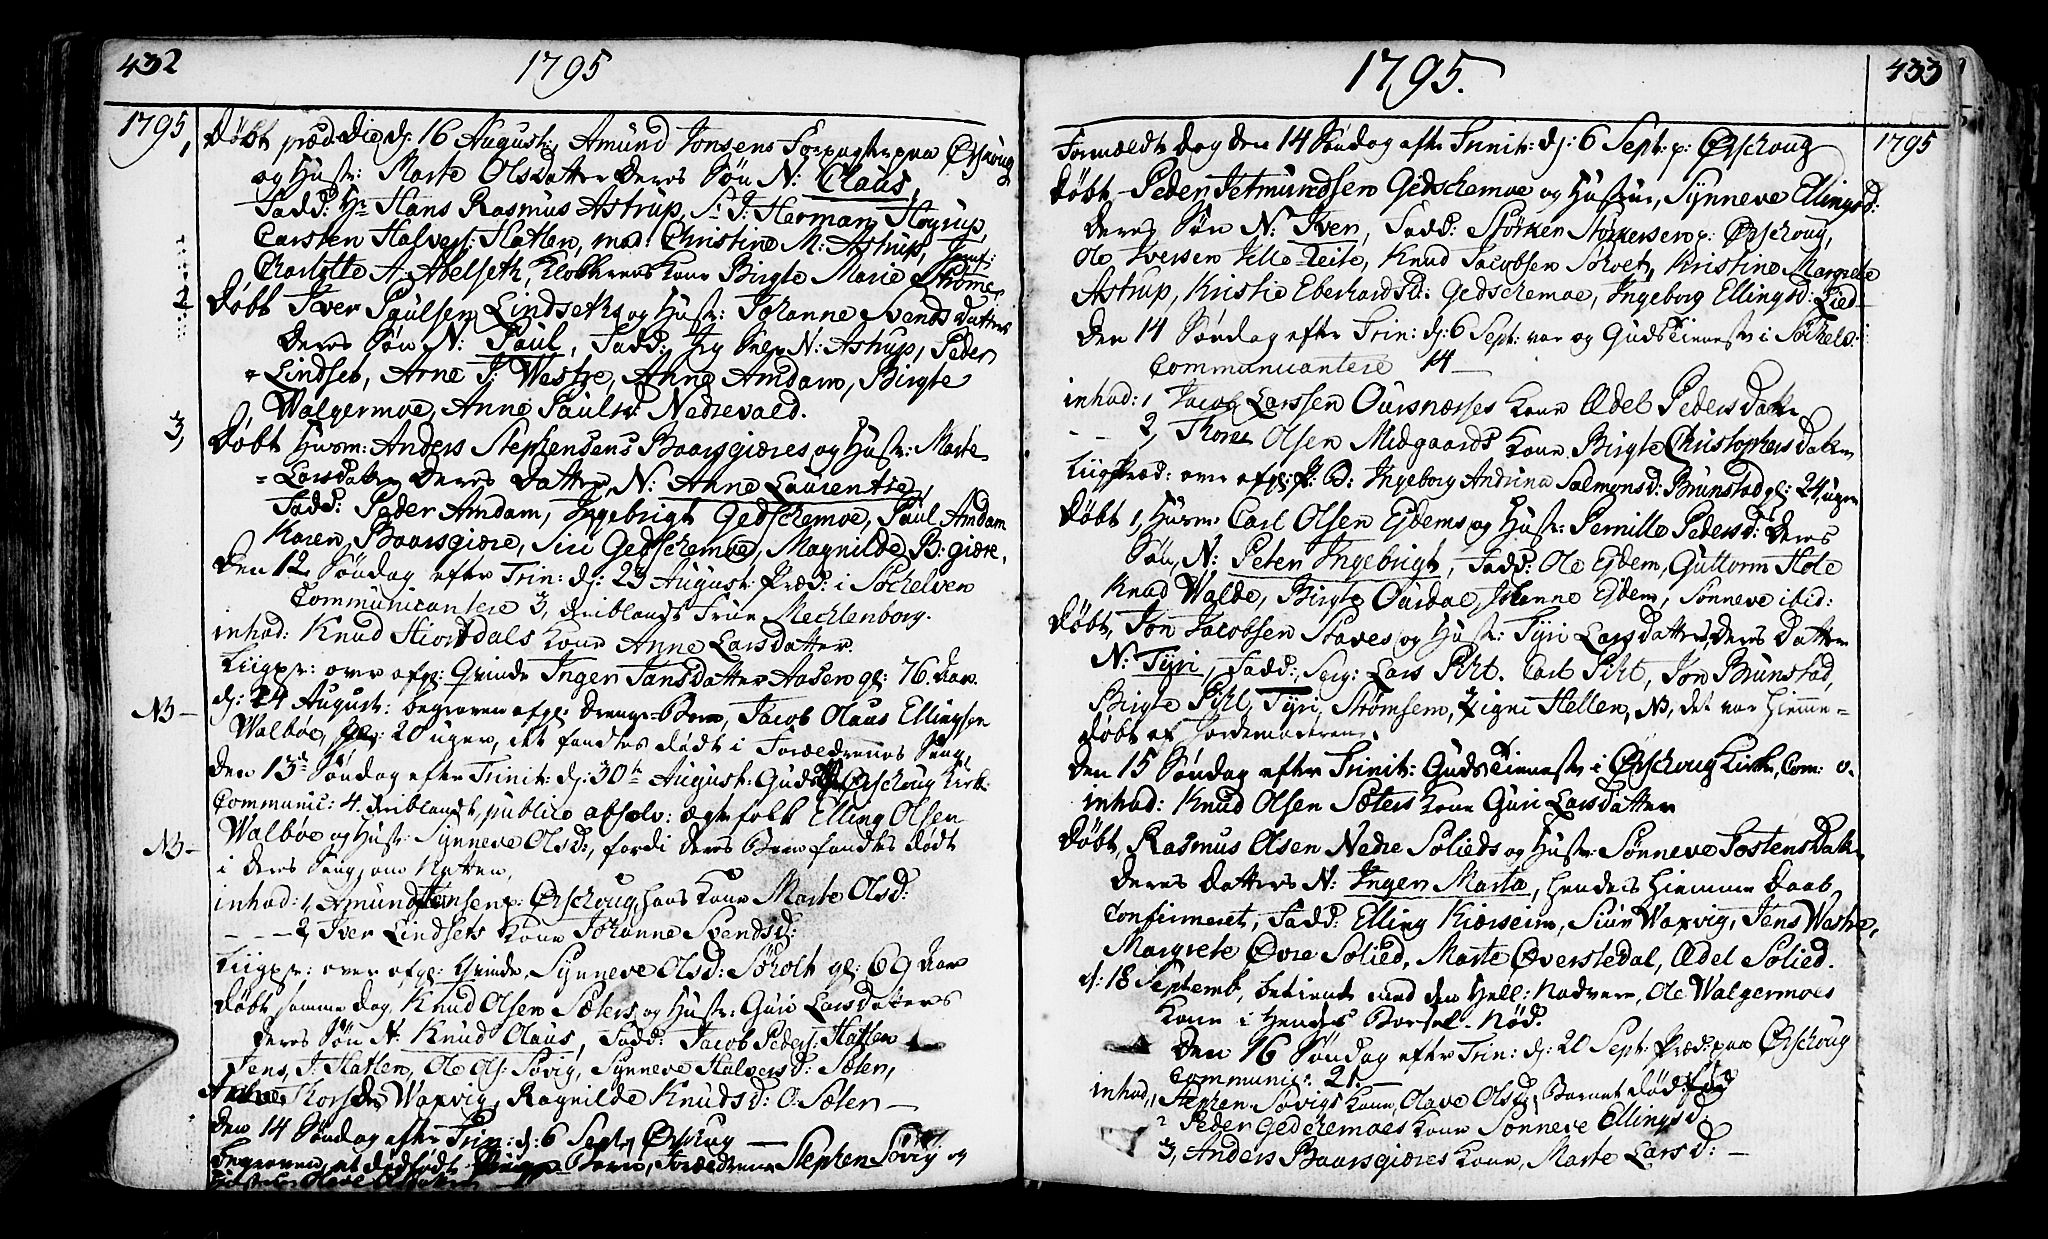 432
1795
1795,
Døbt præd: die d: 16 August:, Amund Jonsens Forpagter paa Ørschoug
og Hustr: Marte Olsdatter Deres Søn N: Claus,
Fadd: Hr Hans Rasmus Astrup, Herman Høyrup,
Carsten Halvers: Hatlen, mad: Christine M: Astrup, Jomf:
Charlotte A. Abelseth, Klokkerens Kone Birgte Marie Strøme.
2
Døbt Iver Paulsen Lindseths og Hustr: Johanne Svendsdatters
Deres Søn N: Paul, Fadd: Jeg Selv N: Astrup, Peder
Lindset, Arne J: Westre, Anne Amdam, Birgte
Walgermoe, Anne Paulsd: Nedrevald.
3,
Døbt Husm: Anders Stephensens Baarsgiæres og Hustr: Marte
Larsdatter Deres Datter, N: Anne Laurentse,
Fadd: Peder Amdam, Ingebrigt Gedschemoe, Paul Amdam
Karen Baarsgiære, Siri Gedschemoe, Magnilde B: giære.
Den 12 Søndag efter Trin: d: 23 August: Præd: i Søchelven
Communicantere 3, iblandt Frue Mechlenborg.
inhad: Knud Hiortdals Kone Anne Larsdatter.
Liigpr: over afg: Qvinde Inger Jansdatter Aasen gl: 76 Aar.
NB -
d: 24 August: begraven afg: Drenge-Barn, Jacob Olaus Ellingsen
Walbøe, gl: 20 uger, det fandtes dødt i Forældrenes Seng,
Den 13de Søndag efter Trinit: d: 30te August: Ørschoug Kirk:
Communic: 4. iblandt, publice absolv: Ægtefolk Elling Olsen
NB -
Walbøe og Hustr: Synneve Olsd:, fordi Deres Barn fandtes dødt
i Deres Seng om Natten,
inhad: 1, Amund Jonsen p: Ørschoug, hans Kone Marte Olsd:
- - - 2, Iver Lindsets Kone Johanne Svendsd:
Liigpr: over afg: Qvinde Synneve Olsd: Søholt gl: 69 Aar
Døbt samme dag, Knud Olsen Sæters og Hustr: Guri Larsdatters
Deres Søn N: Knud Olaus, Fadd: Jacob Peders: Hatlen
Jens J. Hatlen, Ole Ols: Søvig, Synneve Halversd: Sæter,
Waxvig, Ragnilde Knudsd: O: Sæter -
Den 14 Søndag efter Trin: d: 6 Sept, Ørschoug -
Begraven, et dødfødt Barn, Forældrene Stephen Søvig og
433
1795.
1795
Formældte dag den 14 Søndag efter Trinit: d: 6 Sept: p: Ørschoug
Døbt Peder Jetmundsen Gedschemoe og Hustrue, Synneve Ellingsd:
Deres Søn N: Iver, Fadd: Størker Størkersen p: Ørschoug,
Ole Iversen Teite, Knud Jacobsen Solvet, Kristine Margrete
Astrup, Kristie Eberhardsd: Gedschemoe, Ingeborg Ellingsd: Lied.
Den 14 Søndag efter Trin: d: 6 Sept: var og Gudstieneste i Søchelv:
Communicantere 14 -
inhad: 1 Jacob Larssen Oursnæsses Kone Ædel Pedersdatter
- - 2, Thore Olsen Midgaards Kone Birgte Christophersdatter
Liigpræd: over afg: P. B: Ingeborg Andrina Salmonsd: Brunstad gl: 24 uger
Døbt 1, Husm: Carl Olsen Ejdems og Hustr: Pernille Pedersd: Deres
Søn, N: Peter Ingebrigt, Fadd: Ole Ejdem, Guttorm Hole
Knud Walde, Birgte Ourdal, Johanne Ejdem, Sønneve ibid:
Døbt, Jon Jacobsen Staves og Hustr: Tyri Larsdatters, Deres Datter
N: Tyri, Fadd: Serg: Lars Pihl. Carl Pihl, Jon Brunstad,
Birgte Pihl, Tyri Strømsem, Zigni Hellen, NB, det var hiemme-
døbt af Jordemoderen.
Den 15 Søndag efter Trinit: Gudstieneste i Ørschoug Kirke, Com: 0.
inhad: Knud Olsen Sæters Kone Guri Larsdatter
Døbt, Rasmus Olsen Nedre Solieds og Hustr: Sønneve Tostensdatter
Deres Datters N: Inger Marta, hendes hiemme Daab
Confirmeret, Fadd: Elling Kiærseim, Siur Waxvig, Jens Westre,
Margrete Øvre Solied, Marte Øverstedal, Ædel Solied.
d: 18 Septemb, betient med den Hell: Nadvere, Ole Walgermoes
Kone i Hendes Barsel-Nød.
Den 16 Søndag efter Trin: d: 20 Sept: Præd: paa Ørschoug
Communic: 21. -
inhad, 1, Stephen Søvigs Kone, Olave Olsd, Barnet dødfød
2 Peder Gedchemoes Kone Sønneve Ellingsd:
3, Anders Baarsgiæres Kone, Marte Larsd: -